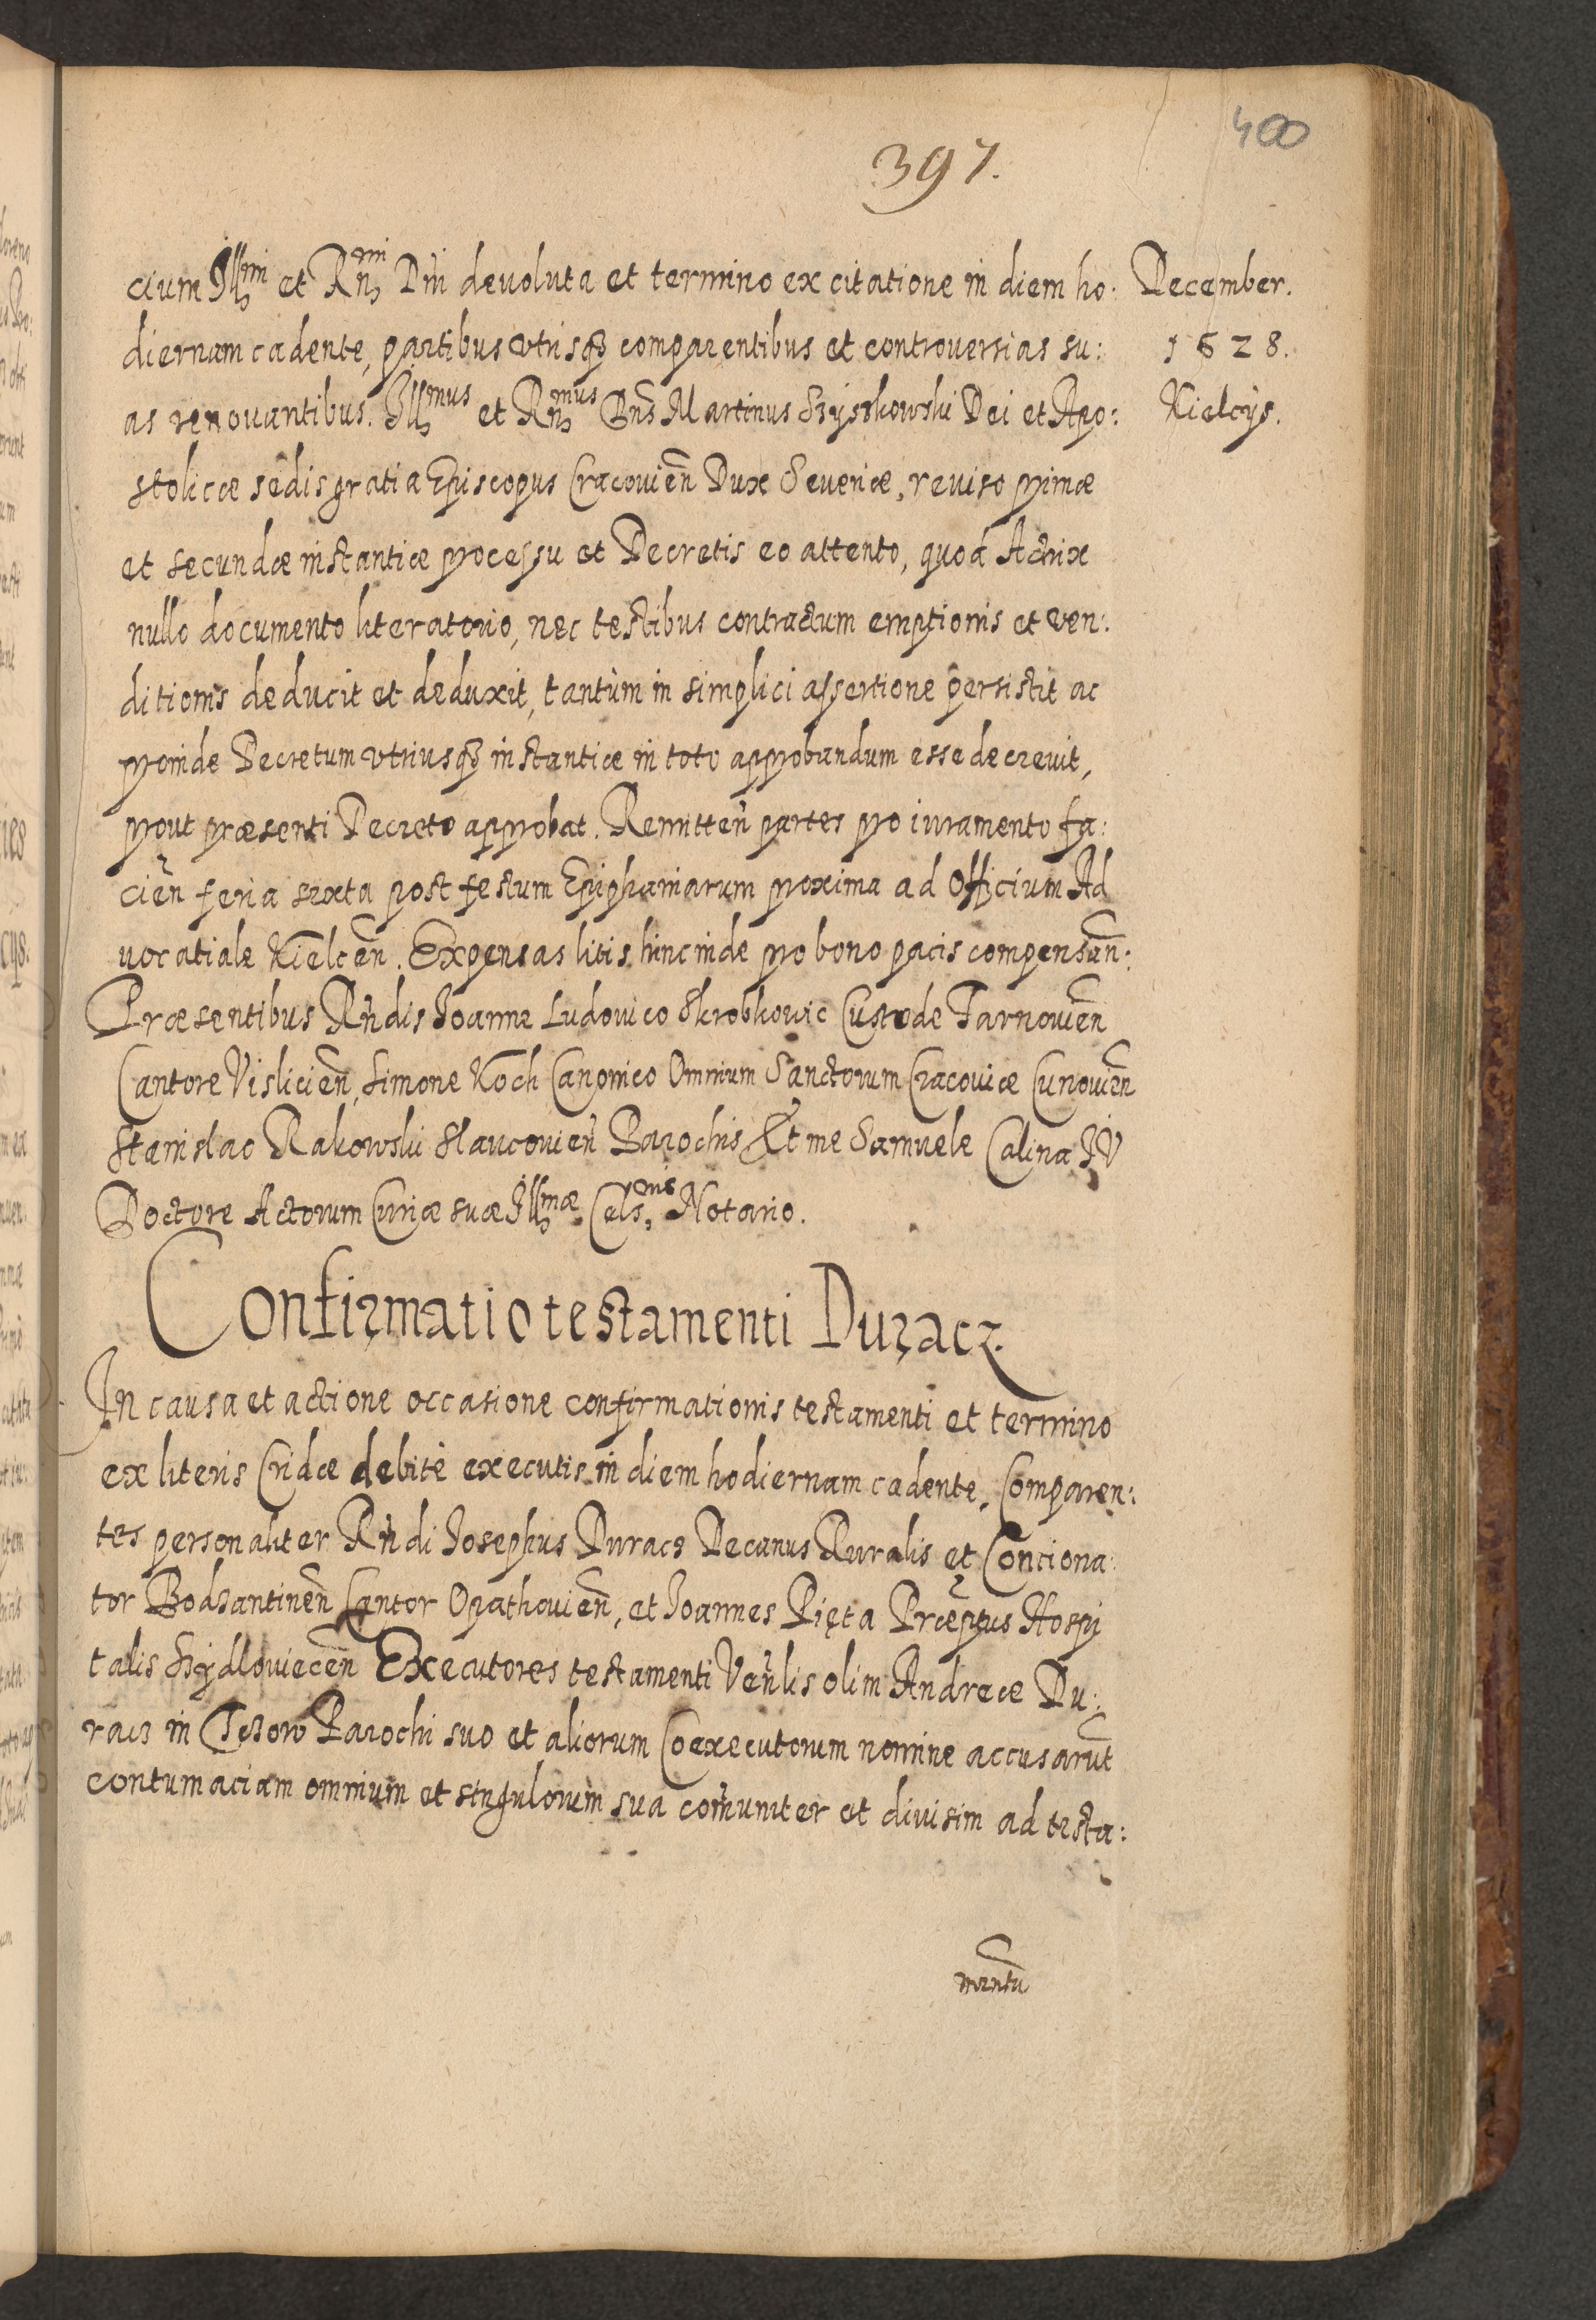 400
397.
cium Illmi et Rn̄mi Dn̄i devoluta et termino ex citatione in diem ho: December.
diernam cadente, partibus utrisq3 comparentibus et controversias su: 1628.
as renovantibus. Illmus et Rn̄mus Dn̄s Martinus Szyszkowski Dei et Apo: Kielcÿs.
stolicæ sedis gratia Episcopus Cracovien̄ Dux Severiæ, reviso primæ
et secundæ instantiæ processu et Decretis eo attento, quod Actrix
nullo documento literatorio, nec testibus contractum emptionis et ven:
ditionis deducit et deduxit, tantùm in simplici assertione persistit ac
proinde Decretum utriusq3 instantiæ in toto approbandum esse decrevit,
prout præsenti Decreto approbat. Remitten̄ partes pro iuramento fa:
cien̄ feria sexta post festum Epiphaniarum proxima ad Officium Ad
vocatiale Kielcen̄. Expensas litis hinc inde pro bono pacis compensan̄:
Præsentibus Rn̄dis Joanne Ludovico Skrobkovic Custode Tarnovien̄
Cantore Vislicien̄, Simone Koch Canonico Omnium Sanctorum Cracoviæ Cunovien̄
Stanislao Rakowski Slavcovien̄ Parochis Et me Samuele Calina IV
Doctore Actorum Curiæ suæ Illmæ Cels,onis Notario.
Confirmatio testamenti Duracz.
In causa et actione occasione confirmationis testamenti et termino
ex literis Cridæ debitè executis in diem hodiernam cadente, Comparen:
tes personaliter Rn̄di Josephus Duracz Decanus Ruralis et Conciona:
tor Bodzantinen̄ Cantor Opathovien̄, et Joannes Pięta Præptus Hospi
talis Szydloviecen̄ Executores testamenti Ven̄lis olim Andreæ Du:
racz in Parochi suo et aliorum Coexecutorum nomine accusarūt
contumaciam omnium et singulorum sua com̄uniter et divisim ad testa:
mentū